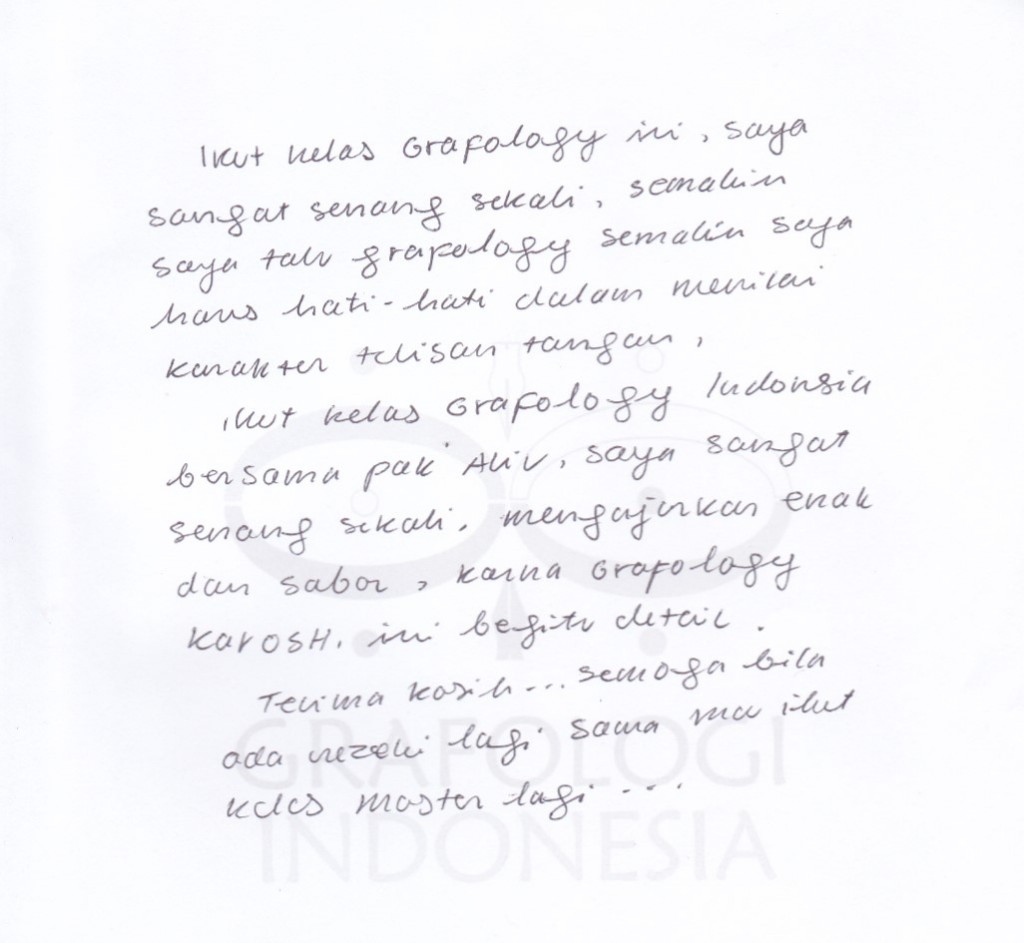 Ikut kelas Grafology ini, saya
sangat senang sekali, semakin
saya tahu grafology semakin saya
harus hati-hati dalam menilai
karakter tulisan tangan,
ikut kelas Grafology Indonsia
bersama pak Aliv, saya sangat
senang sekali. mengajarkan enak
dan sabar, karna Grafology
KAROSH. ini begitu detail.
Terima kasih... semoga bila
ada rezeki lagi sama mau ikut
kelas master lagi ...
GRAFOLOGI
INDONESIA